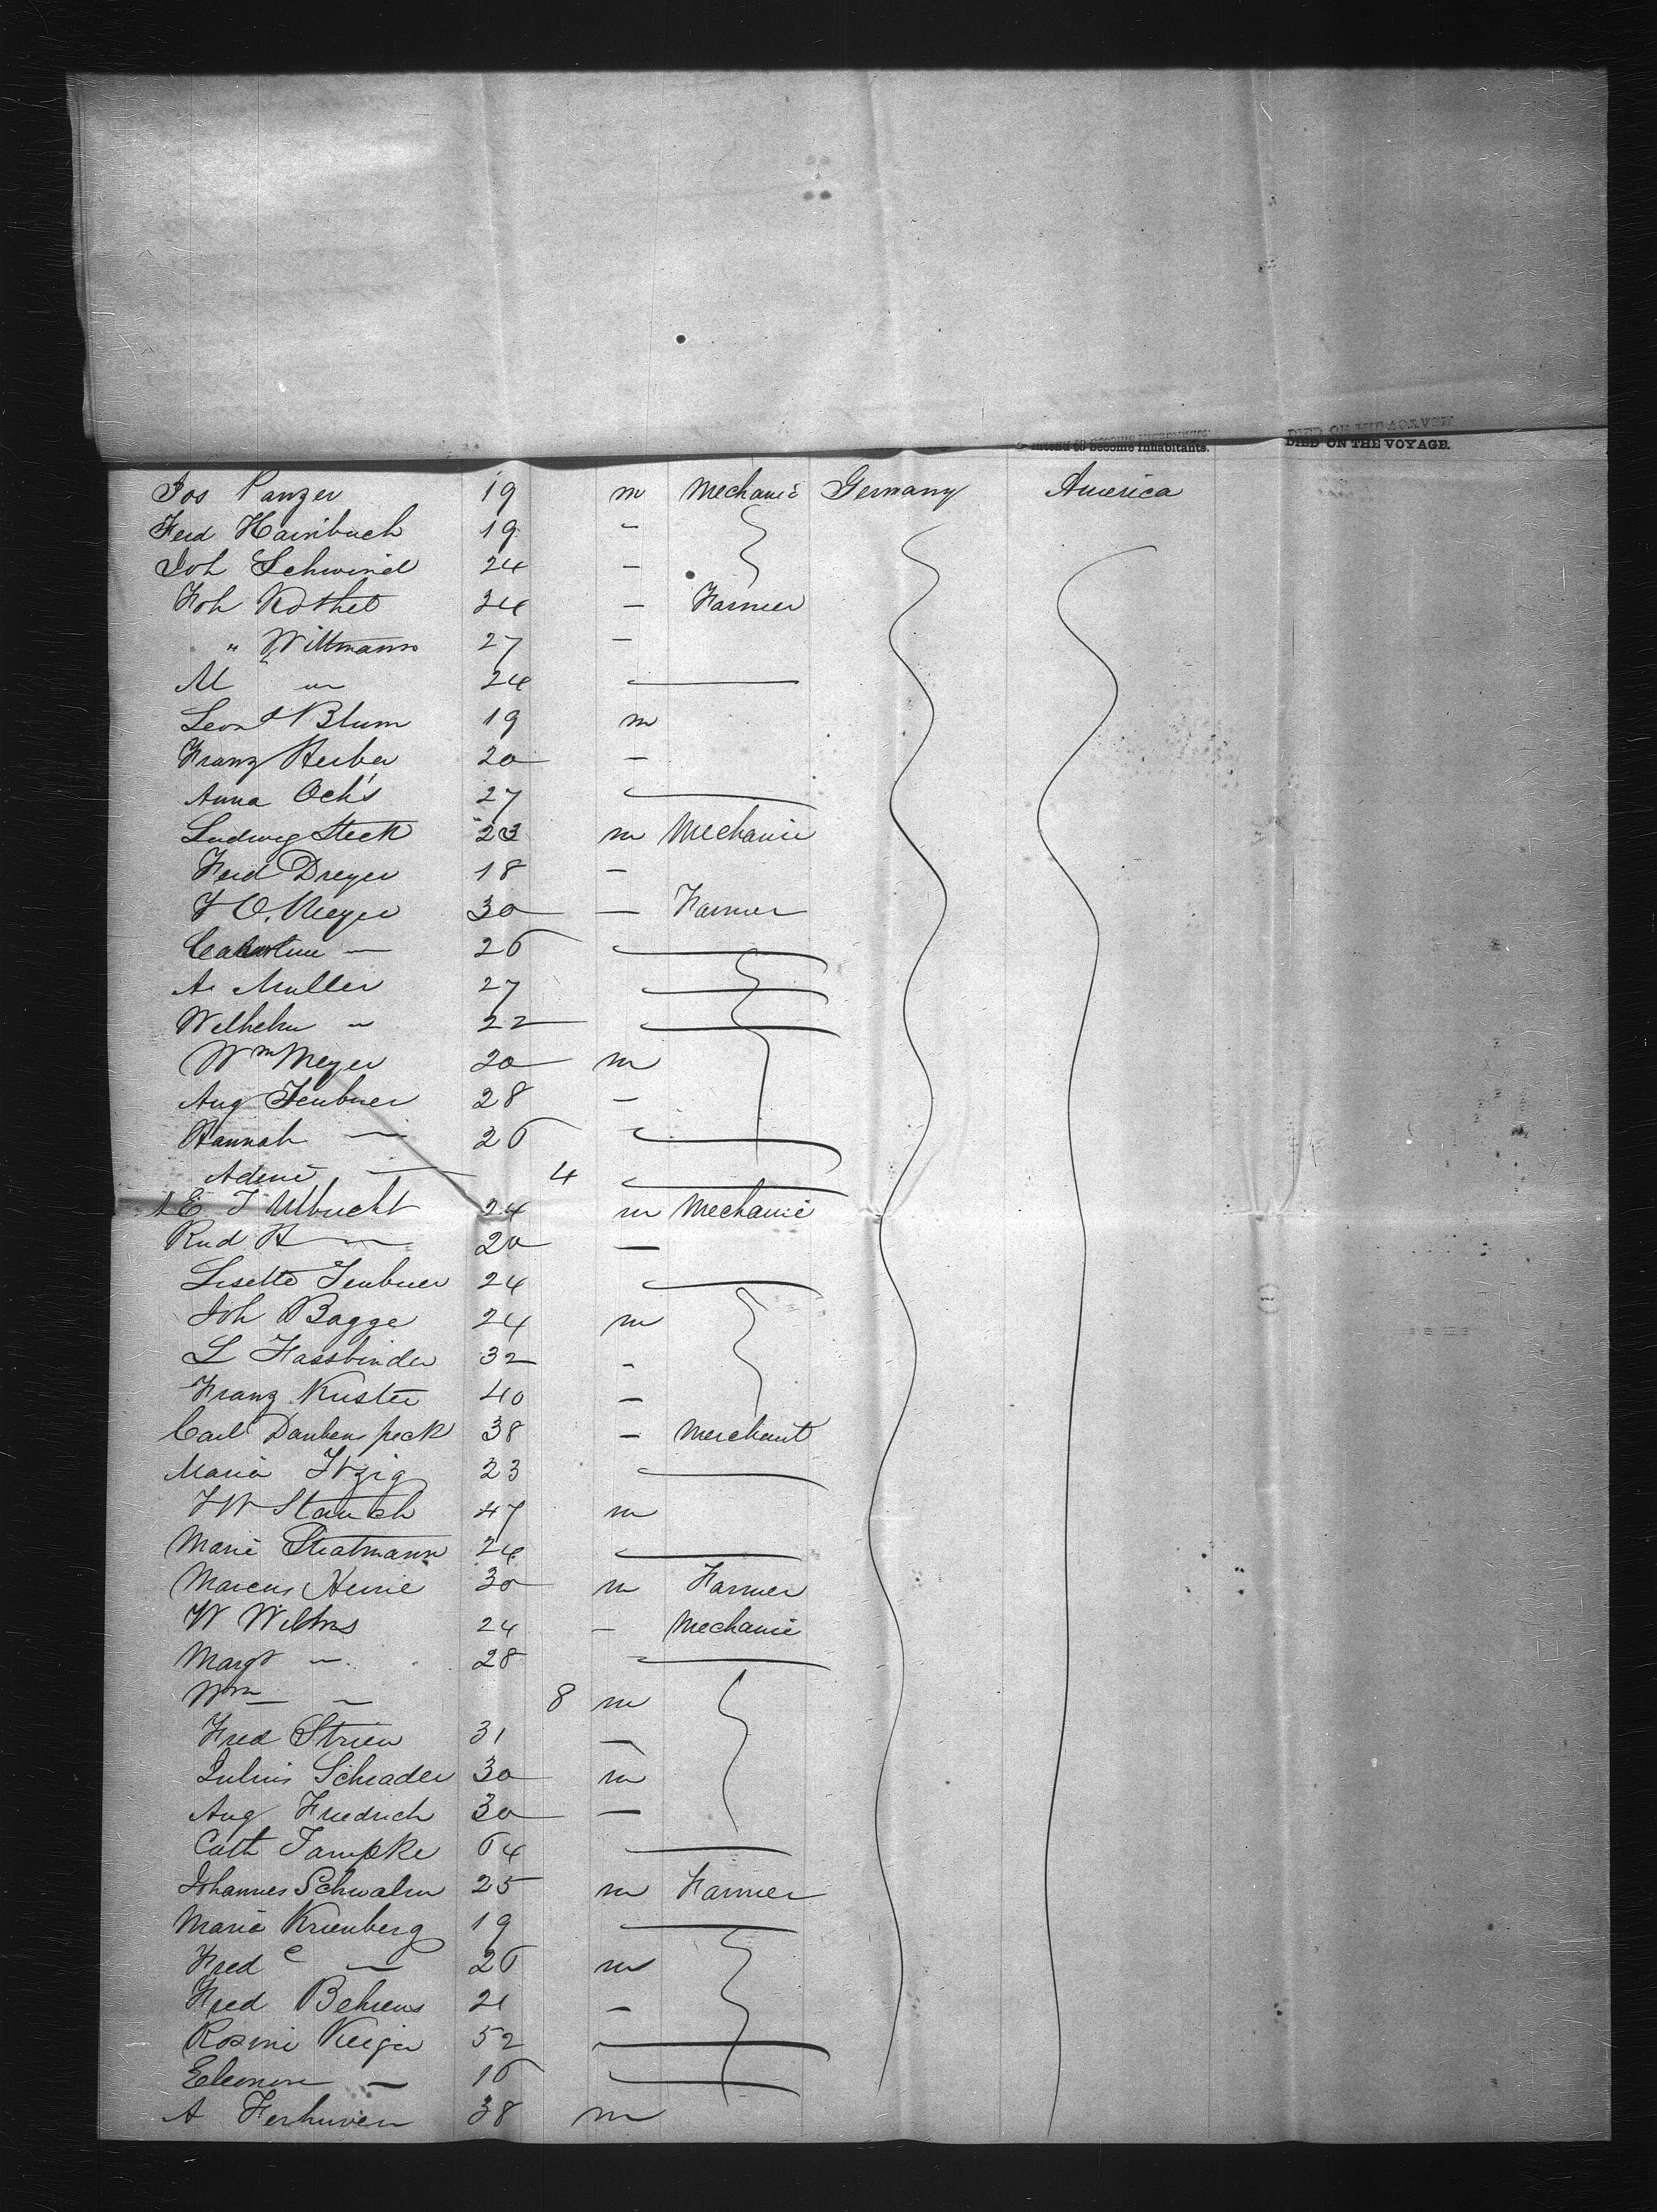 intend to become Inhabitants. DIED ON THE VOYAGE.
Jos Panzer 19 m Mechanic Germany America
Ferd Hambuch 19 -
Joh Schwind 24 -
Joh 24 - Farmer
" Wittmann 27 -
M " 24
Leond Blum 19 m
Franz 20 -
Anna Ochs 27
Ludwig Steck 23 m Mechanic
Ferd Dreyer 18 -
Meyer 30 - Farmer
— 26
A Muller 27
Wilhelm " 22
Wm Meyer 20 m
Aug Teubner 28 -
Hannah — 26
— 4
E T Ulbricht 24 m Mechanic
Rud H — 20 —
Lisette Teubner 24
Joh Bagge 24 m
L Fassbinder 32 -
Franz Kuster 40 -
Carl Daubenspeck 38 - Merchant
Maria Itzig 23
47 m
Marie Stratmann 24
Marcus 30 m Farmer
W Wilkns 24 - Mechanic
Margt — 28
Wm — 8 m
Fred 31 —
Julius Schrader 30 m
Aug Friedrich 30 —
Cath Tampke 64
Johannes Schwalm 25 m Farmer
Maria Krienberg 19
Fredc — 26 m
Fred Behrens 21 -
52
— 16
A 38 m